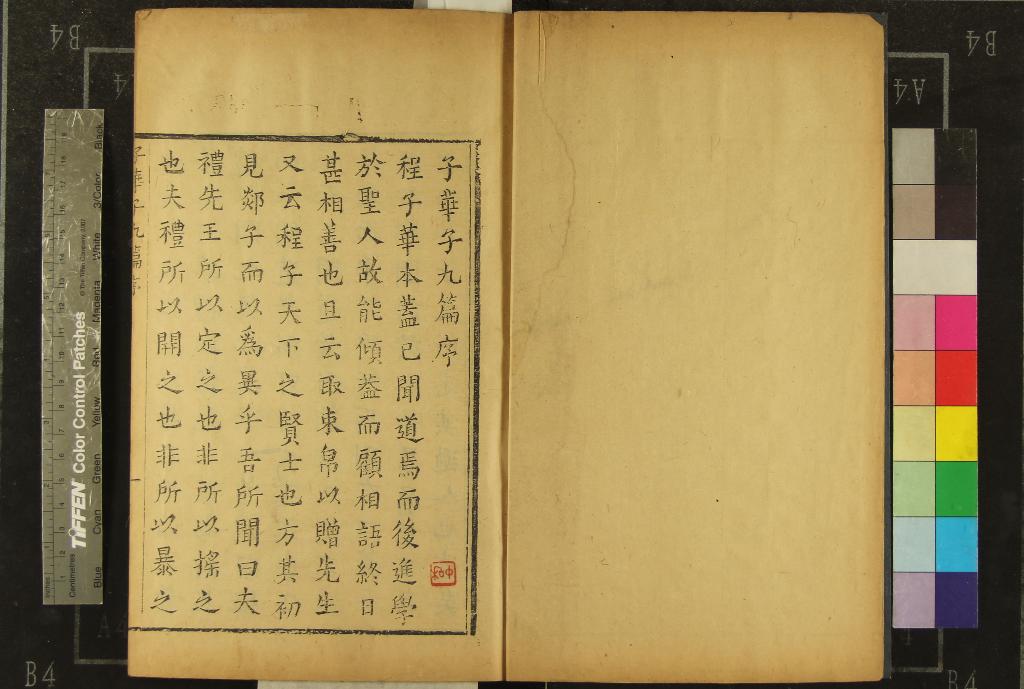 子華子九篇序
程子華本蓋已聞道焉而後進學
於聖人故能傾蓋而顧相語終日
甚相善也且云取束帛以贈先生
又云程子天下之賢士也方其初
見郯子而以爲異乎吾所聞曰夫
禮先王所以定之也非所以搖之
也夫禮所以開之也非所以暴之
子華子九篇序
一
TIFFEN Color Control Patches
© The Tiffen Company, 2007
Inches
Centimetres
Blue
Cyan
Green
Yellow
Red
Magenta
White
3/Color
Black
B4
A4
B4
A4
B4
A4
B4